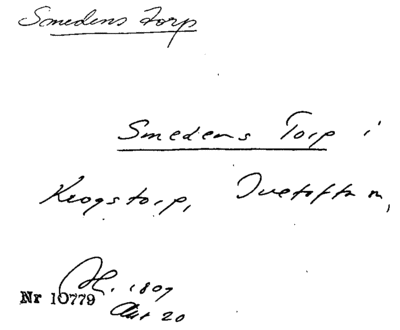 Smedens Torp
Smedens Torp i
Krogstorp, Tvetofta n,
Nr 10779
H. 1809
Akt 20